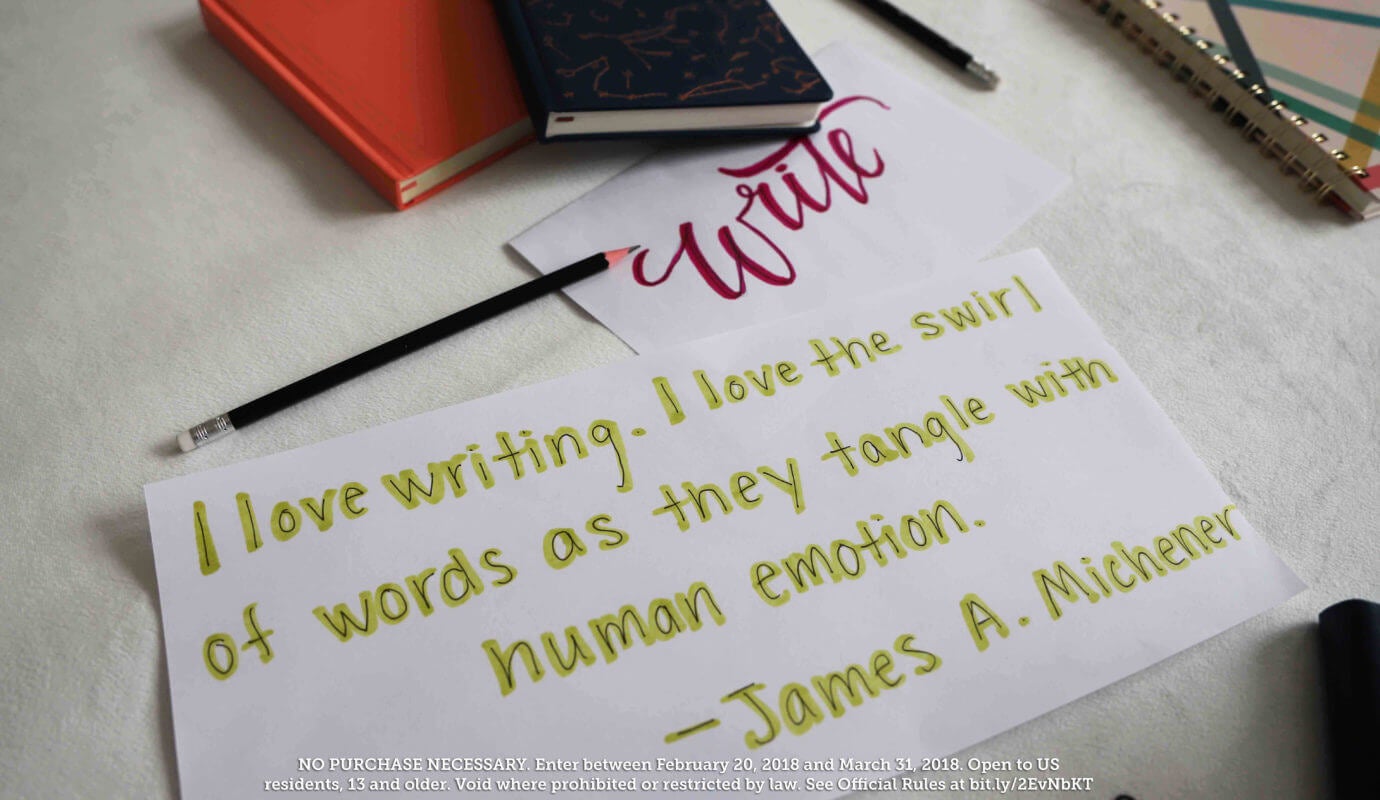 Write
I love writing. I love the swirl
of words as they tangle with
human emotion.
—James A. Michener
NO PURCHASE NECESSARY. Enter between February 20, 2018 and March 31, 2018. Open to US
residents, 13 and older. Void where prohibited or restricted by law. See Official Rules at bit.ly/2EvNbKT